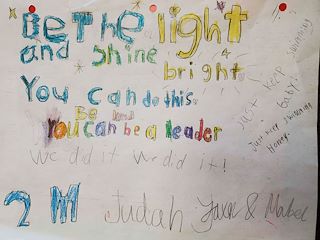 Be The light
and shine
bright
You can do this.
Be kind
You can be a leader
We did it We did it!
Just keep swimming
baby.
Just keep swimming
Honey.
2 M Judah & Mabel